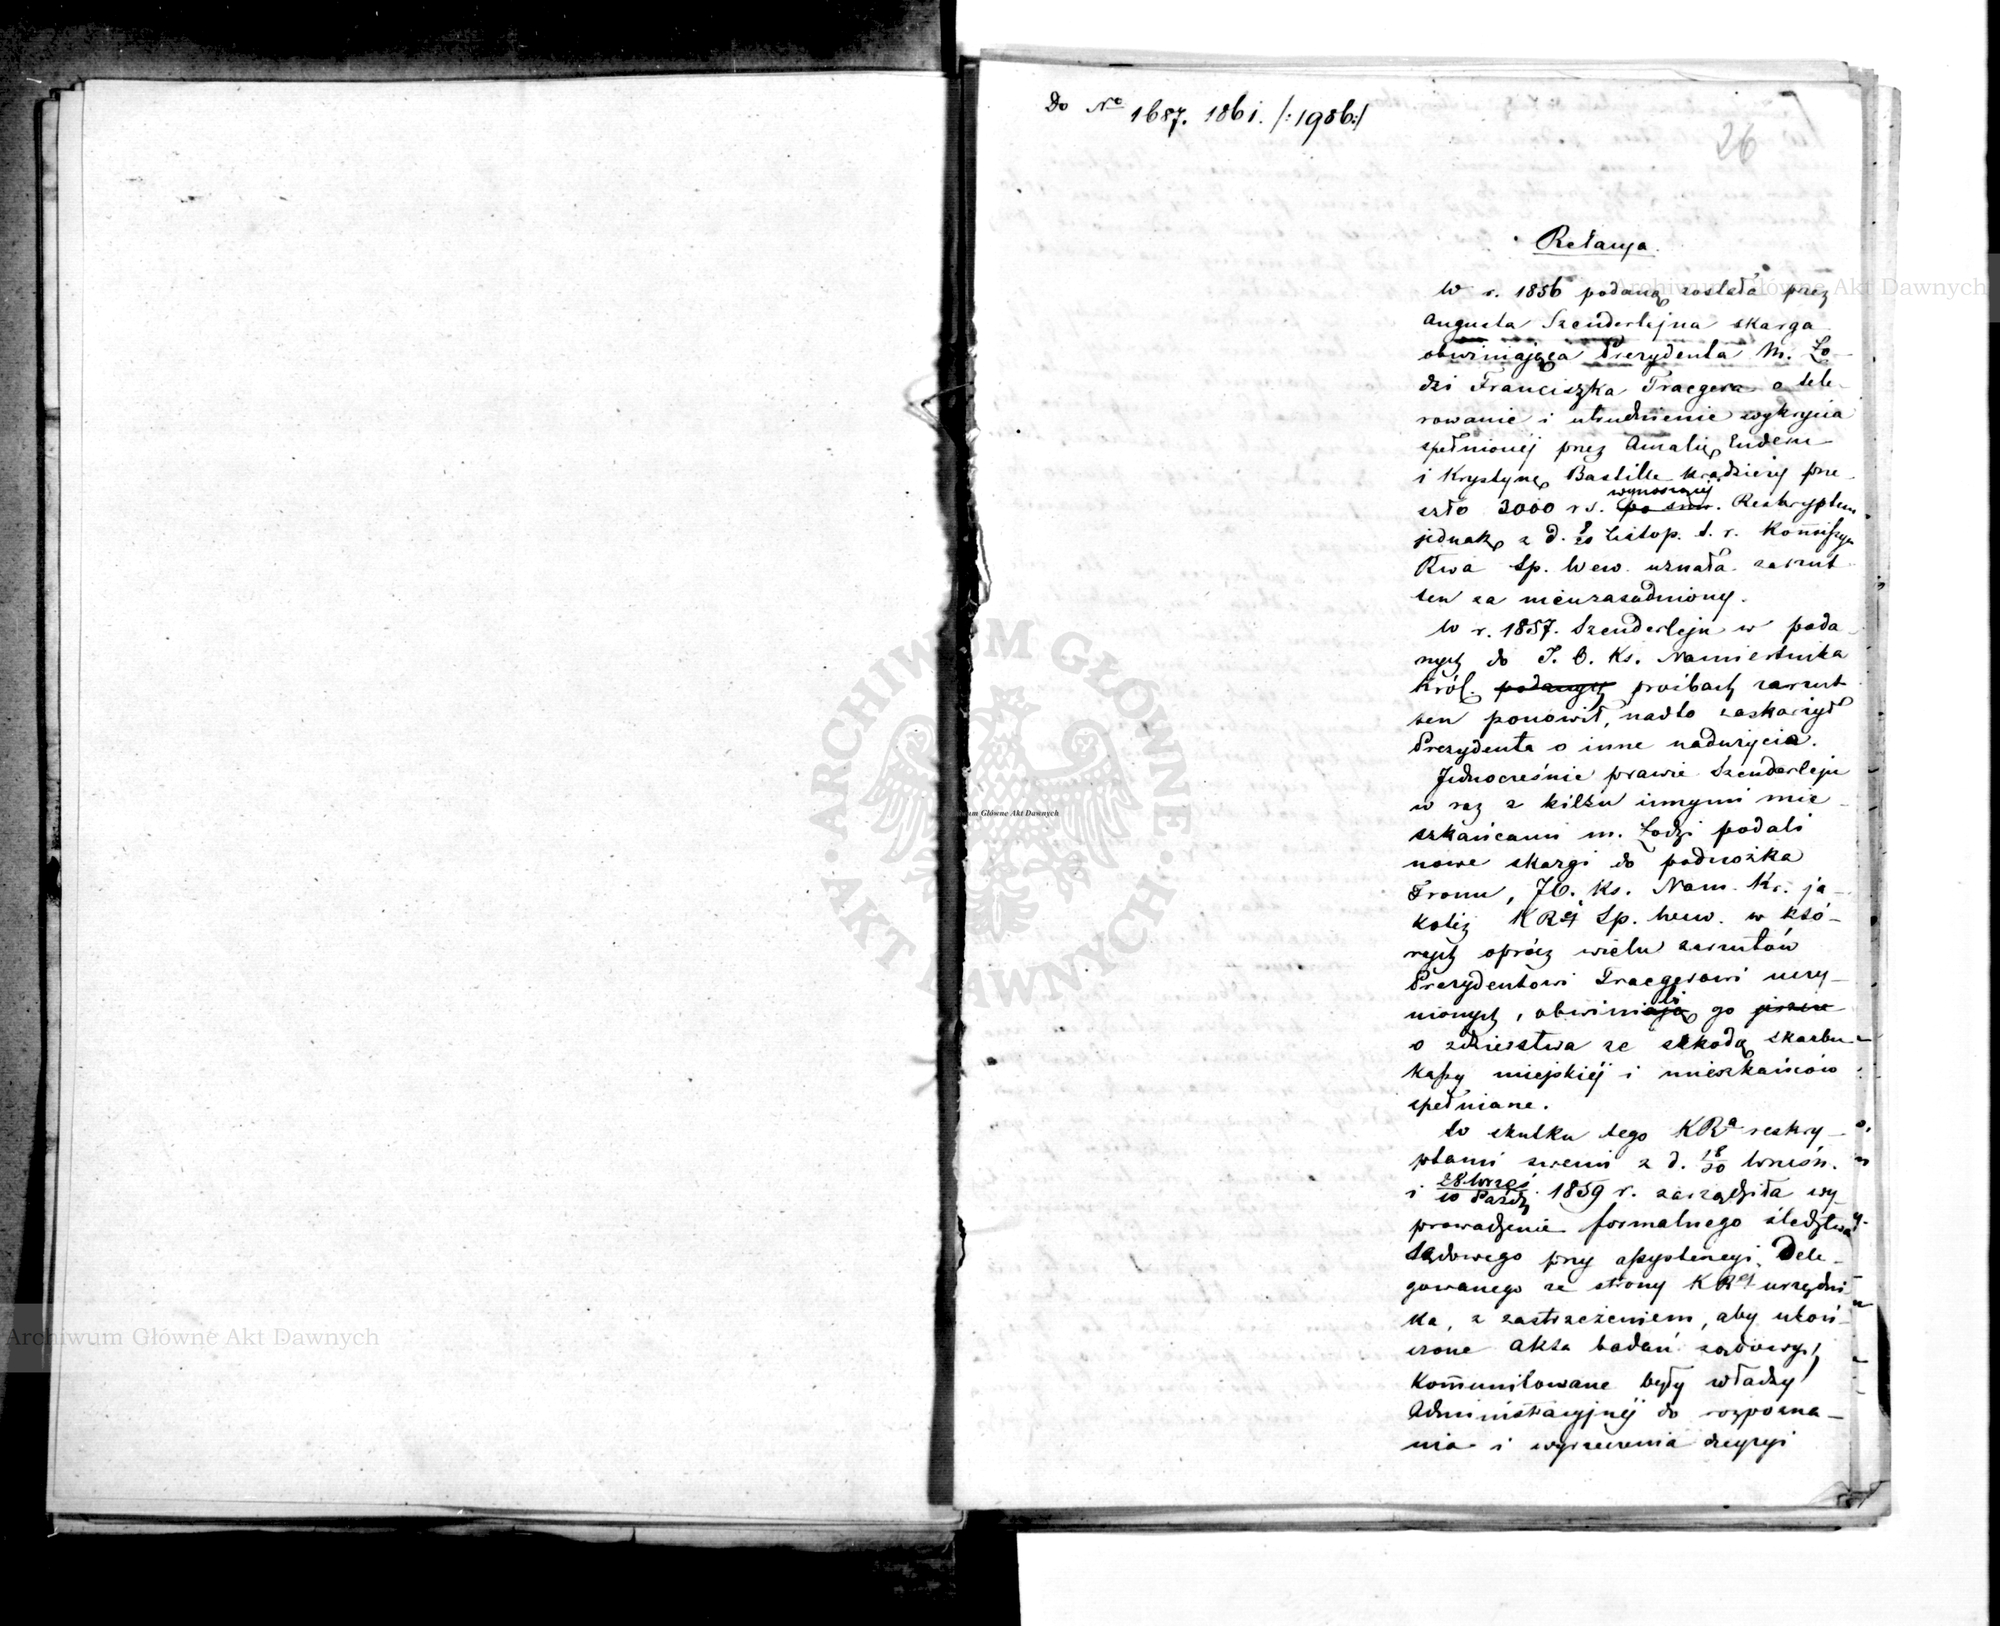 Do No 1687. 1861. /:1986:/
26
Relacya.
W r. 1856 podaną została przez
Augusta Szenderlejna skarga
obwiniająca Prezydenta M. Ło-
dzi Franciszka Traegera o tole-
rowanie i utrudnienie wykrycia
spełnionéj przez Amalię Endem
i Krystynę Bastille kradzieży prze-
szło 3000 rs. wynoszącéj. Reskryptem
jednak z d. 8/20 Listop. t. r. Kommissya
Rwa Sp. Wew. uznała zarzut
ten za nieuzasadniony.
W r. 1857. Szenderlejn w poda-
nych do J. O. Ks. Namiestnika
Król. podanych prośbach zarzut
ten ponowił, nadto zaskarżył
Prezydenta o inne nadużycia.
Jednocześnie prawie Szenderlejn
w raz z kilku innymi mie-
szkańcami m. Łodzi podali
nowe skargi do podnóżka
Tronu, JO. Ks. Nam. Kr. ja-
kotéz KRzy Sp. Wew. w któ-
rych oprócz wielu zarzutów
Prezydentowi Traegerowi uczy-
nionych, obwiniali go jeszcze
o zdzierstwa ze szkodą skarbu
kassy miejskiéj i mieszkańców
spełniane.
W skutku tego KRa reskry-
ptami swemi z d. 18/30 Wrześn.
i 28 Wrześ/10 Paźdz. 1859 r. zarządziła wy-
prowadzenie formalnego śledztwa
Sądowego przy assystencyi Dele-
gowanego ze strony KRzy urzędni-
ka, z zastrzeżeniem, aby ukoń-
czone akta badań sądowych
kommunikowane były władzy
Administracyjnéj do rozpozna-
nia i wyrzeczenia decyzyi
ARCHIWUM GŁÓWNE · AKT DAWNYCH ·
Archiwum Główne Akt Dawnych
Archiwum Główne Akt Dawnych
Archiwum Główne Akt Dawnych